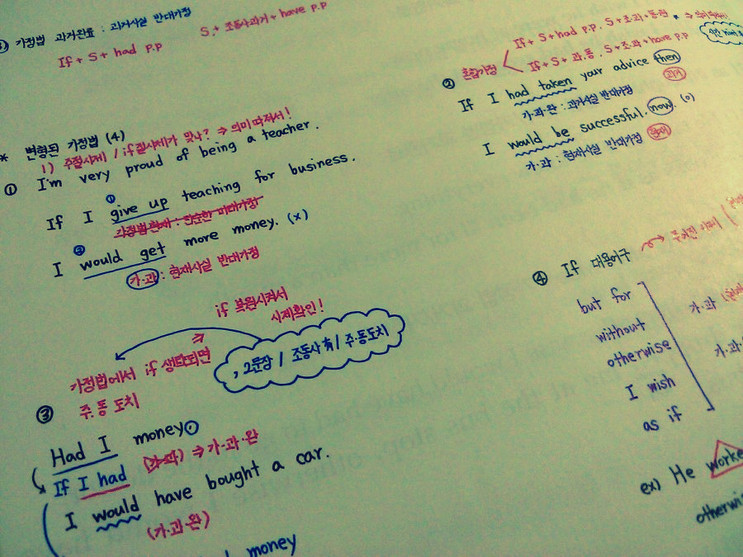 가정법 과거완료 : 과거사실 반대가정
If + S + had p.p
S + 조동사과거 + have p.p
* 변형된 가정법 (4)
1) 주절시제 / if절시제가 맞나? ⇒ 의미따져서!
① I'm very proud of being a teacher.
①
If I give up teaching for business.
가정법현재 : 단순한 미래가정
②
I would get more money. (x)
가·과 : 현재사실 반대가정
② 혼합가정
If + S + had p.p. S + 조·과 + 동원
If + S + 과.동. S + 조·과 + have p.p
If I had taken your advice then
과거
가·과·완 : 과거사실 반대가정
I would be successful. now. (o)
현재
가·과 : 현재사실 반대가정
if 복원시켜서
시제확인!
, 2문장 / 조동사 有 / 주·동도치
가정법에서 if 생략되면
주·동 도치
③ Had I money
If I had (가·과) ⇒ 가·과·완
I would have bought a car.
(가·과·완)
money
④ If 대용어구
but for
without
otherwise
I wish
as if
가·과
가·과·
ex) He worke
otherwis